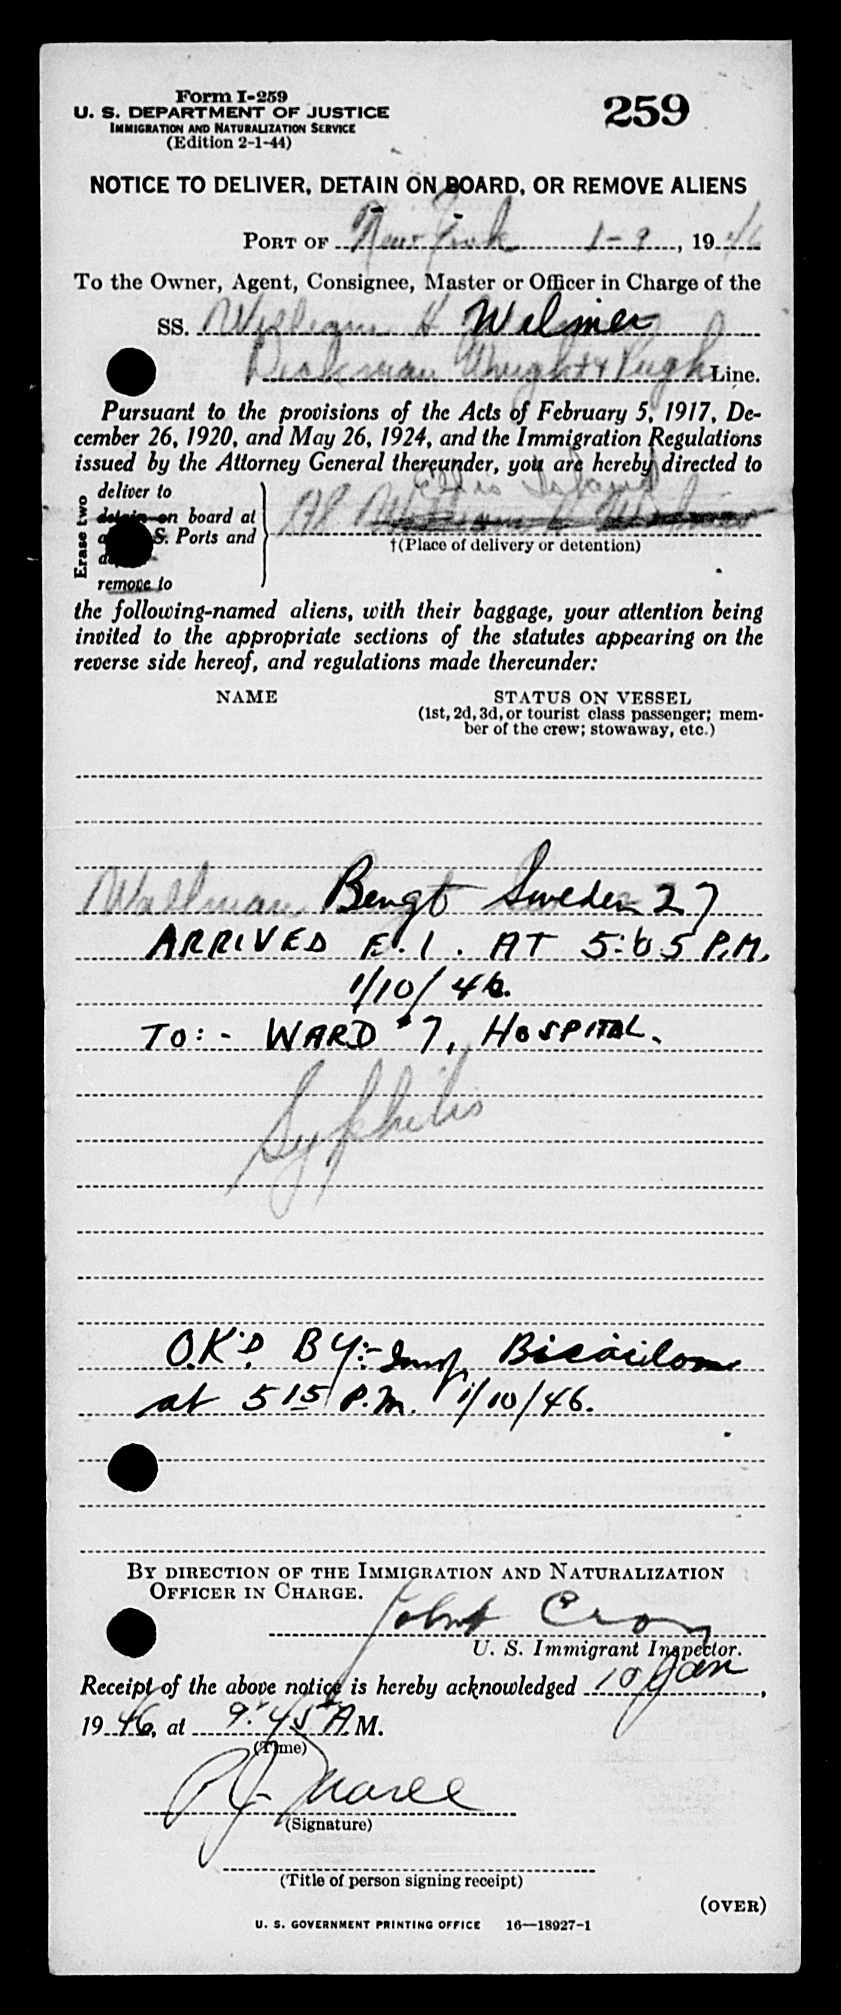 Form I-259
U. S. DEPARTMENT OF JUSTICE
IMMIGRATION AND NATURALIZATION SERVICE
(Edition 2-1-44)
259
NOTICE TO DELIVER, DETAIN ON BOARD, OR REMOVE ALIENS
PORT OF New York 1-9, 1946
To the Owner, Agent, Consignee, Master or Officer in Charge of the
SS. William H Wilmer
Dichman Wright & Pugh Line.
Pursuant to the provisions of the Acts of February 5, 1917, De-
cember 26, 1920, and May 26, 1924, and the Immigration Regulations
issued by the Attorney General thereunder, you are hereby directed to
Erase two
deliver to
detain on board at
S. Ports and
remove to
Ellis Island
†(Place of delivery or detention)
the following-named aliens, with their baggage, your attention being
invited to the appropriate sections of the statutes appearing on the
reverse side hereof, and regulations made thereunder:
NAME
STATUS ON VESSEL
(1st, 2d, 3d, or tourist class passenger; mem-
ber of the crew; stowaway, etc.)
Wallman Bengt Sweden 27
ARRIVED E.I. AT 5:05 P.M.
1/10/46.
TO:- WARD #7, HOSPITAL.
Syphilis
O.K'D. BY:- Insp.
at 515 P.M. 1/10/46.
BY DIRECTION OF THE IMMIGRATION AND NATURALIZATION
OFFICER IN CHARGE.
U. S. Immigrant Inspector.
Receipt of the above notice is hereby acknowledged 10 Jan,
1946, at 9:45 A.M.
(Time)
(Signature)
(Title of person signing receipt)
(OVER)
U. S. GOVERNMENT PRINTING OFFICE 16—18927-1